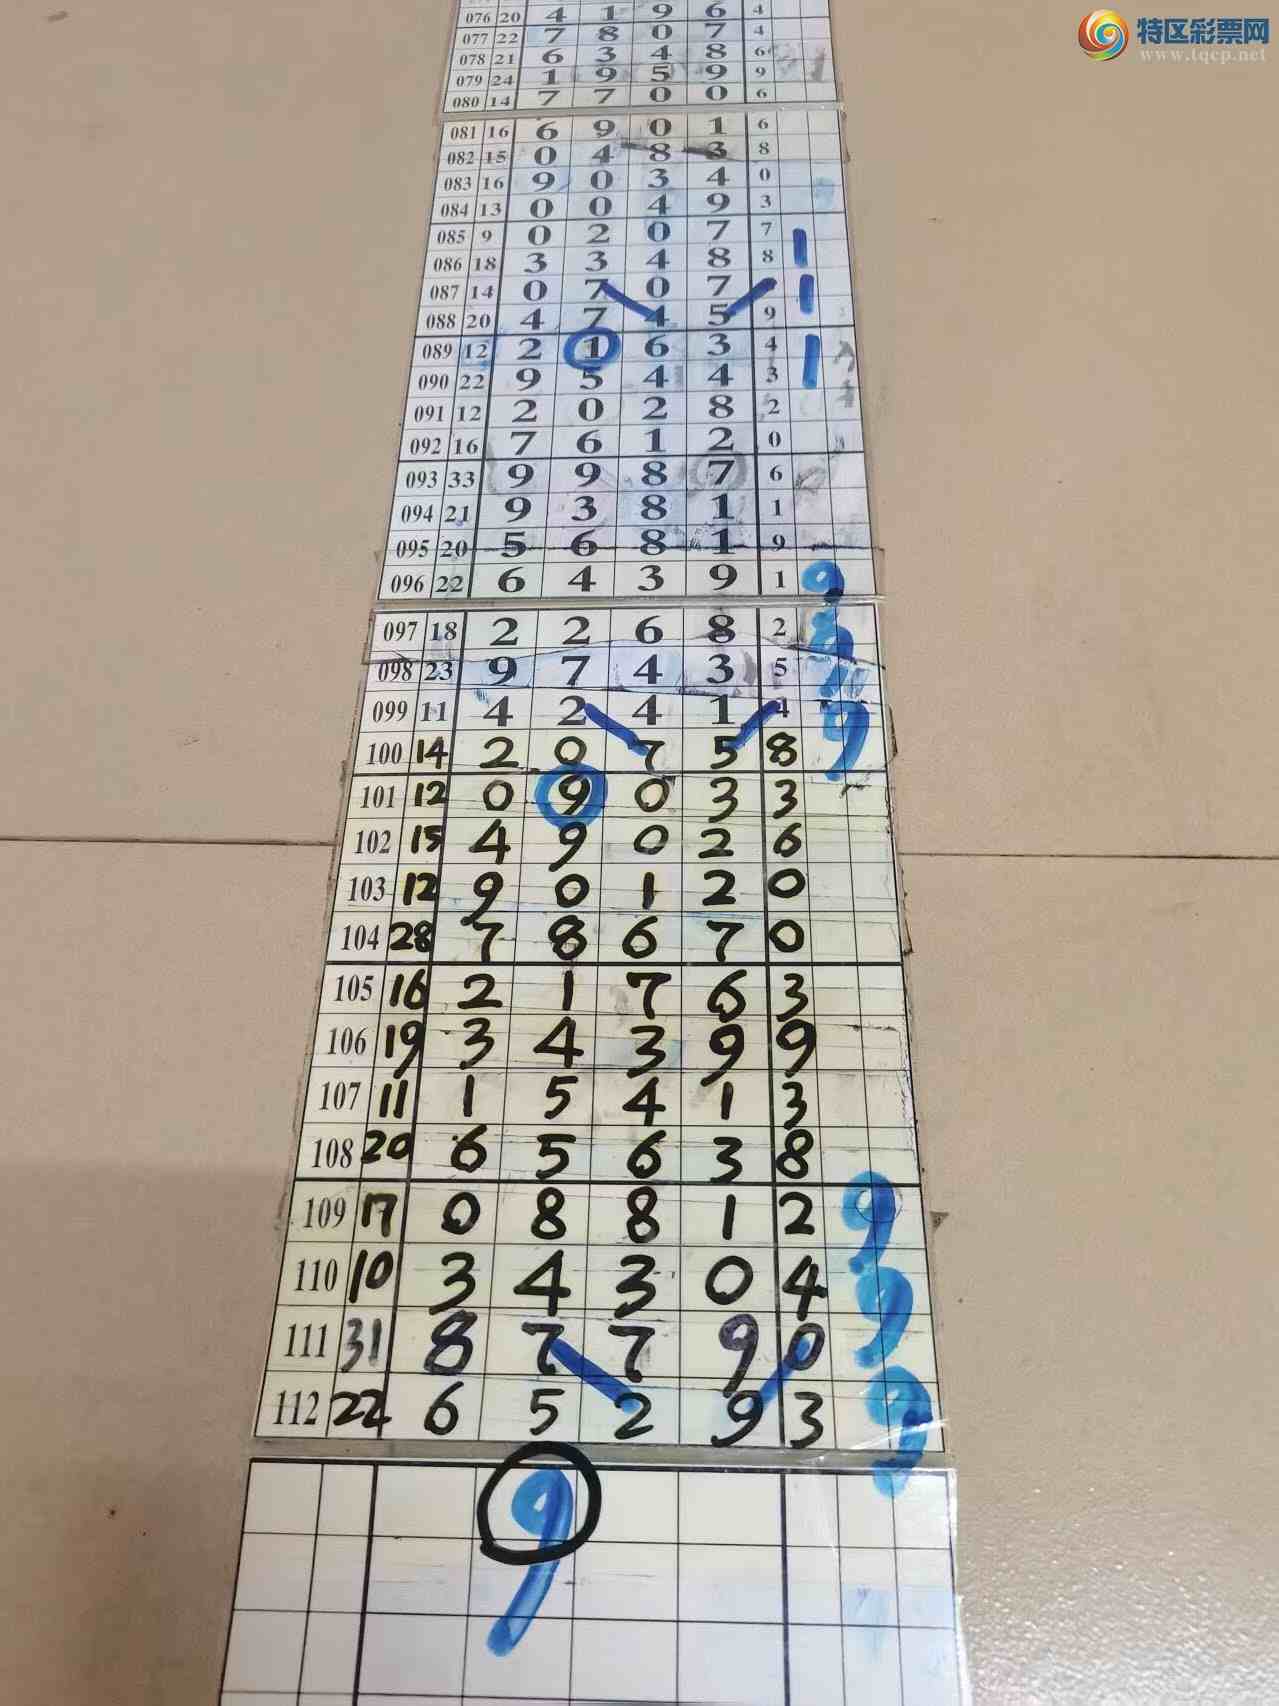 特区彩票网
www.tqcp.net
076 20 4 1 9 6 4
077 22 7 8 0 7 4
078 21 6 3 4 8 6
079 24 1 9 5 9 9
080 14 7 7 0 0 6
081 16 6 9 0 1 6
082 15 0 4 8 3 8
083 16 9 0 3 4 0
084 13 0 0 4 9 3
085 9 0 2 0 7 7
086 18 3 3 4 8 8
087 14 0 7 0 7
088 20 4 7 4 5 9
089 12 2 1 6 3 4
090 22 9 5 4 4 3
091 12 2 0 2 8 2
092 16 7 6 1 2 0
093 33 9 9 8 7 6
094 21 9 3 8 1 1
095 20 5 6 8 1 9
096 22 6 4 3 9 1 9
097 18 2 2 6 8 2 9
098 23 9 7 4 3 5
099 11 4 2 4 1 4 9
100 14 2 0 7 5 8
101 12 0 9 0 3 3
102 15 4 9 0 2 6
103 12 9 0 1 2 0
104 28 7 8 6 7 0
105 16 2 1 7 6 3
106 19 3 4 3 9 9
107 11 1 5 4 1 3
108 20 6 5 6 3 8
109 17 0 8 8 1 2 9
110 10 3 4 3 0 4 9
111 31 8 7 7 9 0
112 22 6 5 2 9 3 9
9